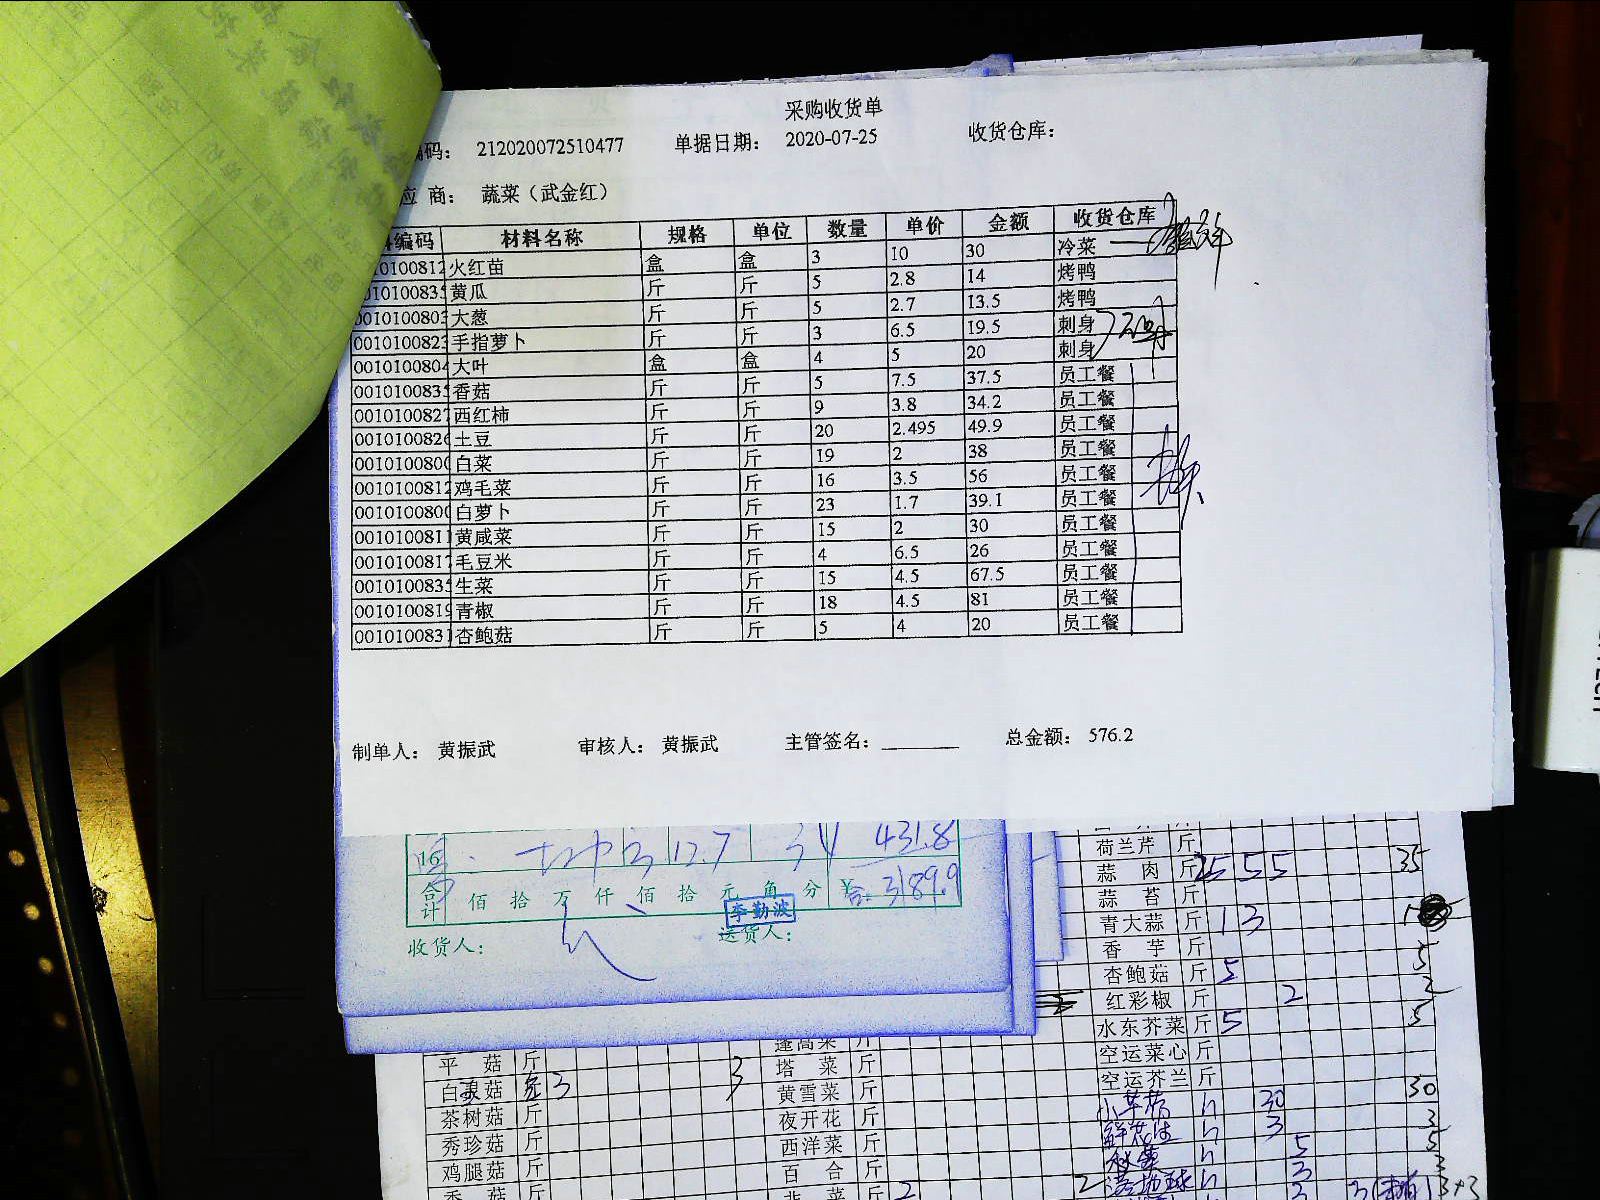 采购收货单
编码： 212020072510477 单据日期： 2020-07-25 收货仓库：
应 商： 蔬菜（武金红）
编码 材料名称 规格 单位 数量 单价 金额 收货仓库
0010100812 火红苗 盒 盒 3 10 30 冷菜
0010100835 黄瓜 斤 斤 5 2.8 14 烤鸭
0010100803 大葱 斤 斤 5 2.7 13.5 烤鸭
0010100823 手指萝卜 斤 斤 3 6.5 19.5 刺身
0010100804 大叶 盒 盒 4 5 20 刺身
0010100835 香菇 斤 斤 5 7.5 37.5 员工餐
0010100827 西红柿 斤 斤 9 3.8 34.2 员工餐
0010100826 土豆 斤 斤 20 2.495 49.9 员工餐
0010100800 白菜 斤 斤 19 2 38 员工餐
0010100812 鸡毛菜 斤 斤 16 3.5 56 员工餐
0010100800 白萝卜 斤 斤 23 1.7 39.1 员工餐
0010100811 黄咸菜 斤 斤 15 2 30 员工餐
0010100817 毛豆米 斤 斤 4 6.5 26 员工餐
0010100835 生菜 斤 斤 15 4.5 67.5 员工餐
0010100819 青椒 斤 斤 18 4.5 81 员工餐
0010100831 杏鲍菇 斤 斤 5 4 20 员工餐
制单人： 黄振武 审核人： 黄振武 主管签名： 总金额： 576.2
16 12.7 34 431.8
合计 佰 拾 万 仟 佰 拾 元 角 分 ¥ 3189.9
李勤波
收货人： 送货人：
荷兰芹 斤
蒜肉 斤 25 5 5 35
蒜苔 斤
青大蒜 斤 1 3
香芋 斤 5
杏鲍菇 斤 5
红彩椒 斤 2 2
水东芥菜 斤 5 5
空运菜心 斤
空运芥兰 斤
30 30
3 3
5 5
平菇 斤
白灵菇 3 3
茶树菇 斤
秀珍菇 斤
鸡腿菇 斤
蓬蒿菜 斤
塔菜 斤
黄雪菜 斤
夜开花 斤
西洋菜 斤
百合 斤